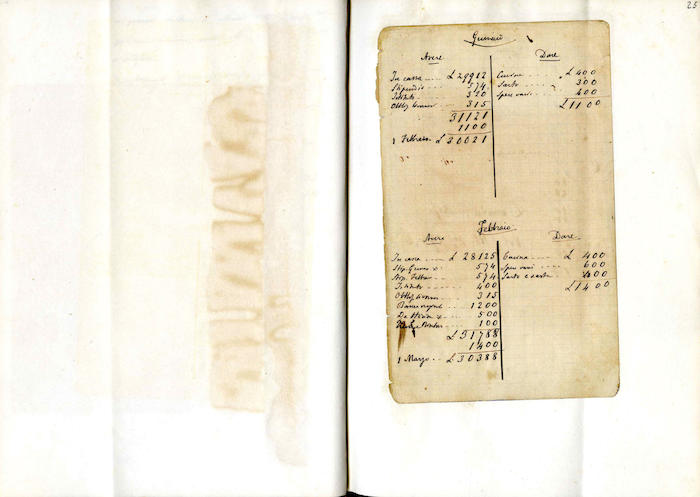 25
Gennaio
Avere
In cassa £ 29912
Stipendio 574
Istituto 320
Obblig. 315
31121
1100
1 Febbraio £ 30021
Dare
Cucina £ 400
Sarto 300
Spese varie 400
£ 1100
Febbraio
Avere
In cassa £ 28125
Stip. Genn. 574
Stip. Febbr. 574
Istituto 400
Obblig. 315
Banca 1200
500
100
£ 31788
1400
1 Marzo £ 30388
Dare
Cucina £ 400
Spese varie 600
Sarto e sarta 400
£ 1400